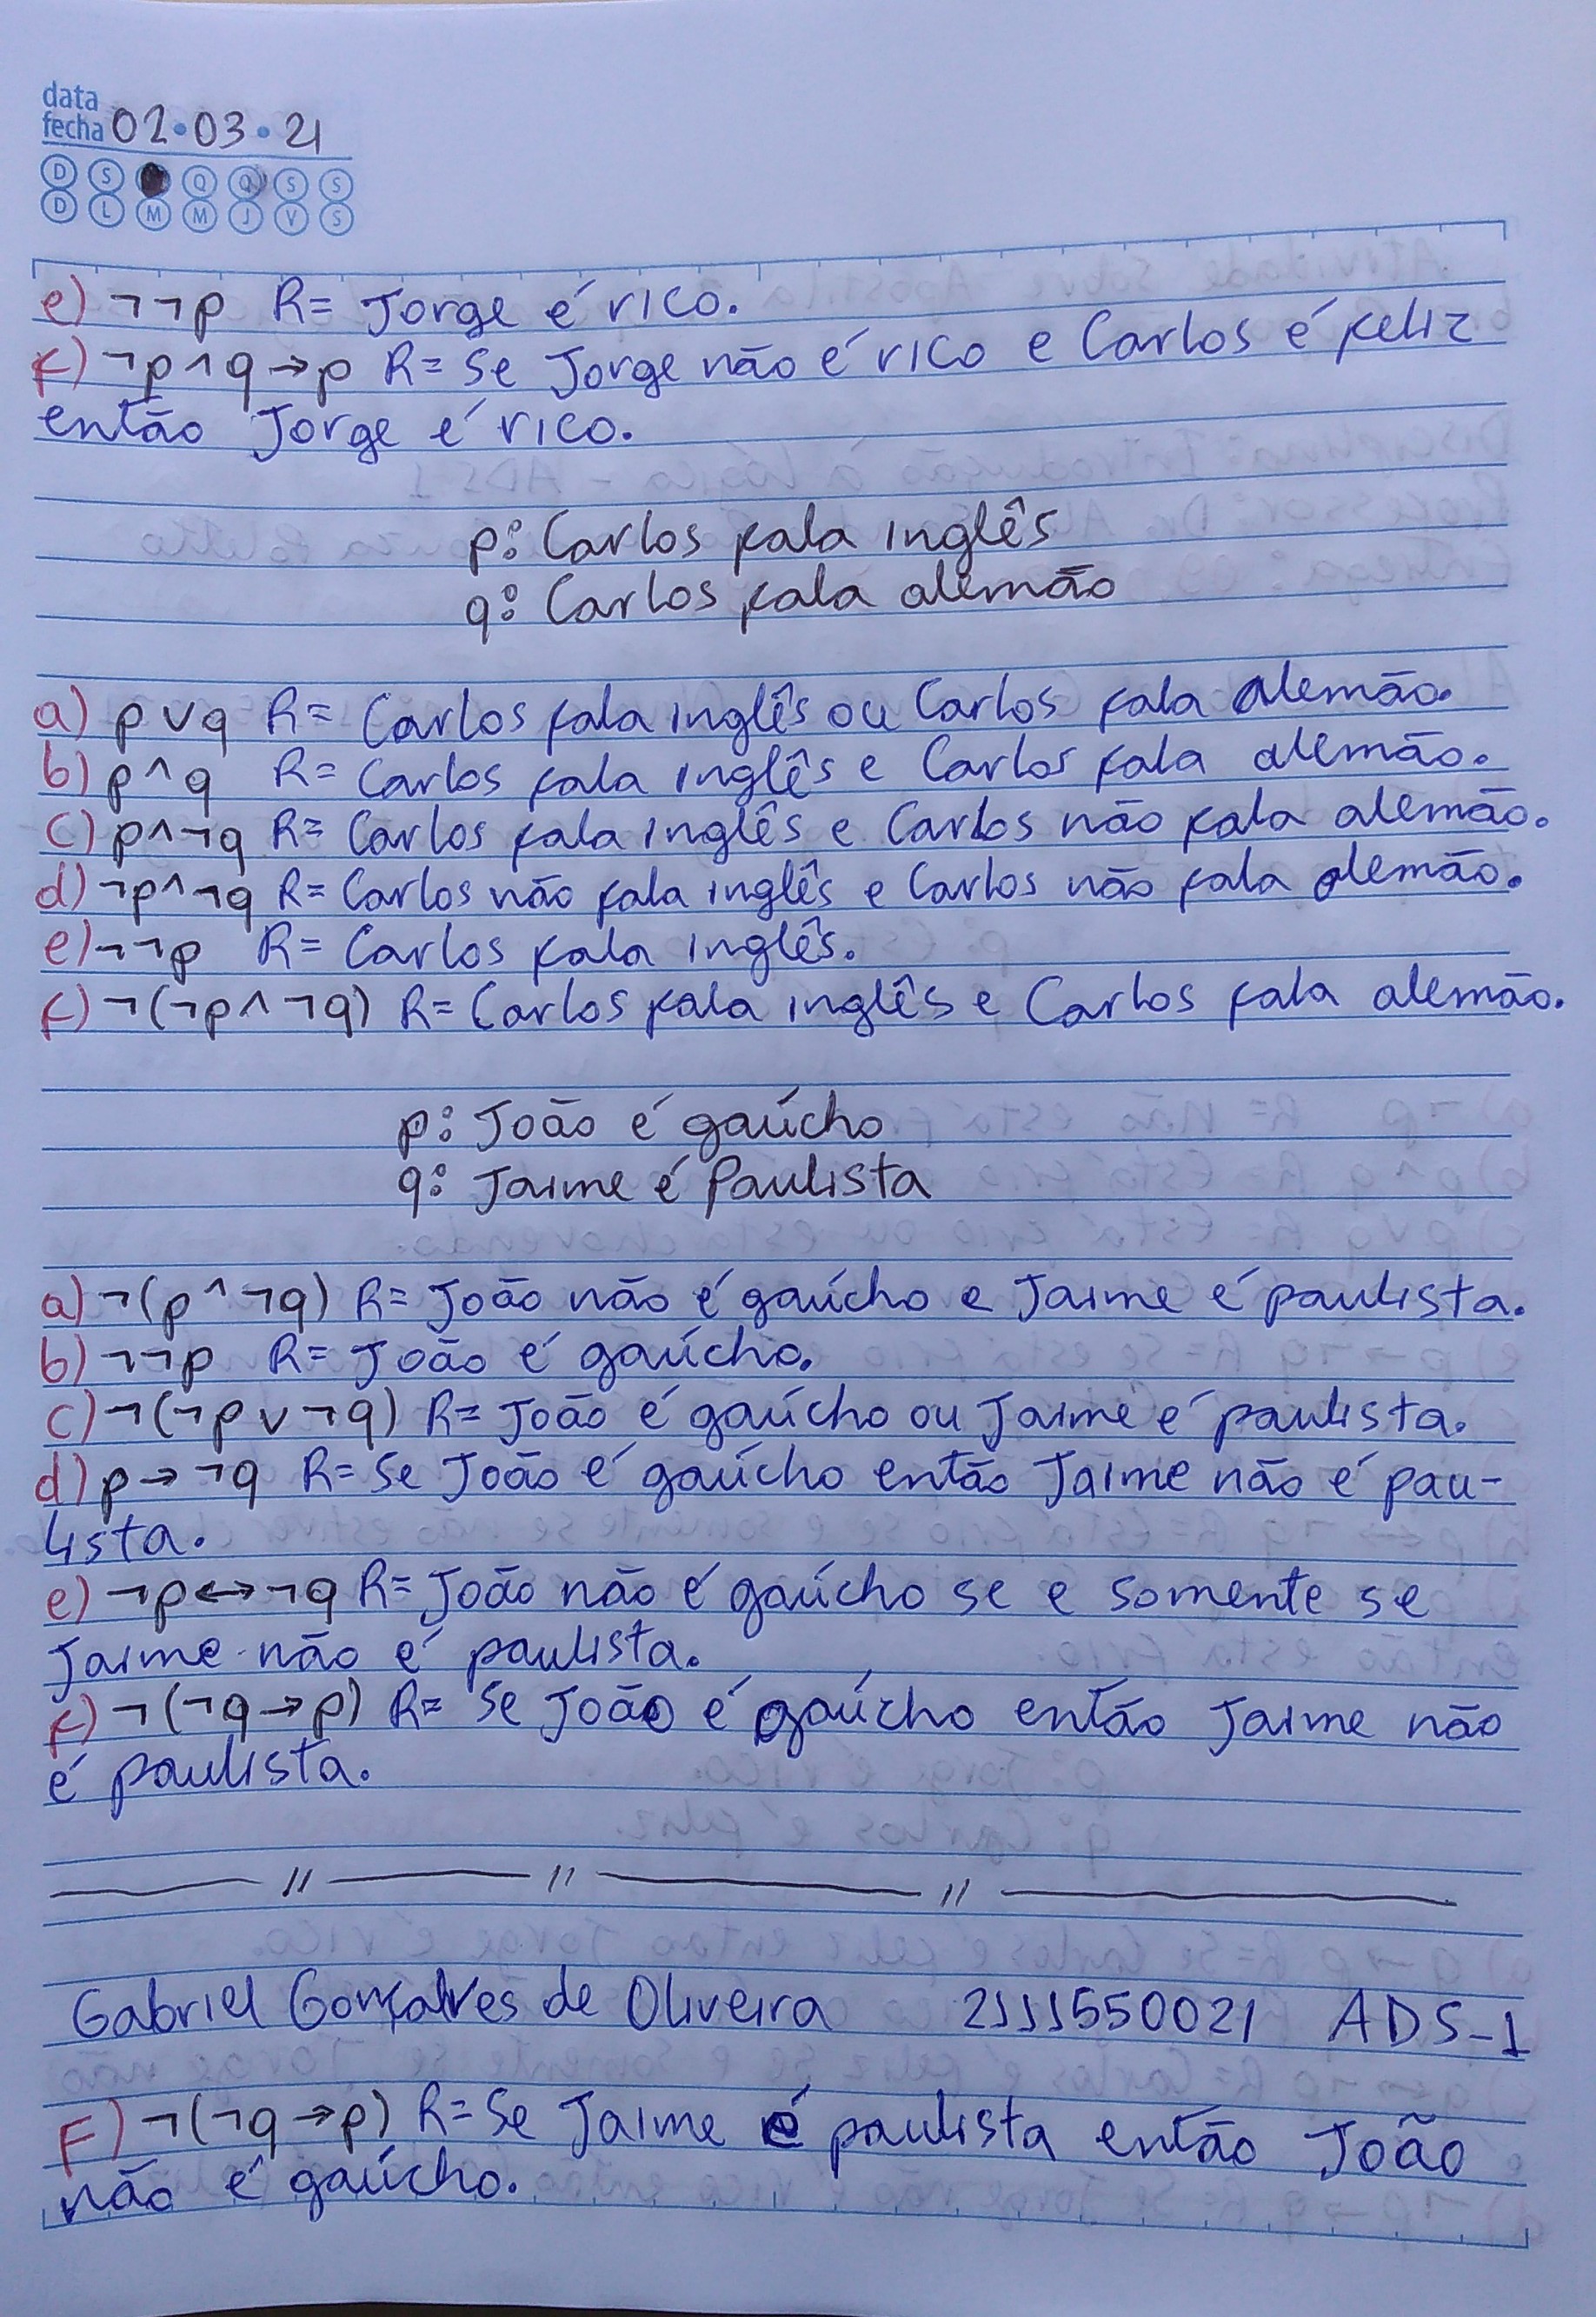 data
fecha 02 • 03 • 21
D S Q Q S S
D L M M J V S
e) ¬¬p R= Jorge é rico.
f) ¬p^q→p R= Se Jorge não é rico e Carlos é feliz
então Jorge é rico.
p: Carlos fala inglês
q: Carlos fala alemão
a) p∨q R= Carlos fala inglês ou Carlos fala alemão.
b) p^q R= Carlos fala inglês e Carlos fala alemão.
c) p^¬q R= Carlos fala inglês e Carlos não fala alemão.
d) ¬p^¬q R= Carlos não fala inglês e Carlos não fala alemão.
e) ¬¬p R= Carlos fala inglês.
f) ¬(¬p^¬q) R= Carlos fala inglês e Carlos fala alemão.
p: João é gaúcho
q: Jaime é Paulista
a) ¬(p^¬q) R= João não é gaúcho e Jaime é paulista.
b) ¬¬p R= João é gaúcho.
c) ¬(¬p∨¬q) R= João é gaúcho ou Jaime é paulista.
d) p→¬q R= Se João é gaúcho então Jaime não é pau-
lista.
e) ¬p↔¬q R= João não é gaúcho se e somente se
Jaime não é paulista.
f) ¬(¬q→p) R= Se João é gaúcho então Jaime não
é paulista.
Gabriel Gonçalves de Oliveira 2111550021 ADS-1
F) ¬(¬q→p) R= Se Jaime é paulista então João
não é gaúcho.